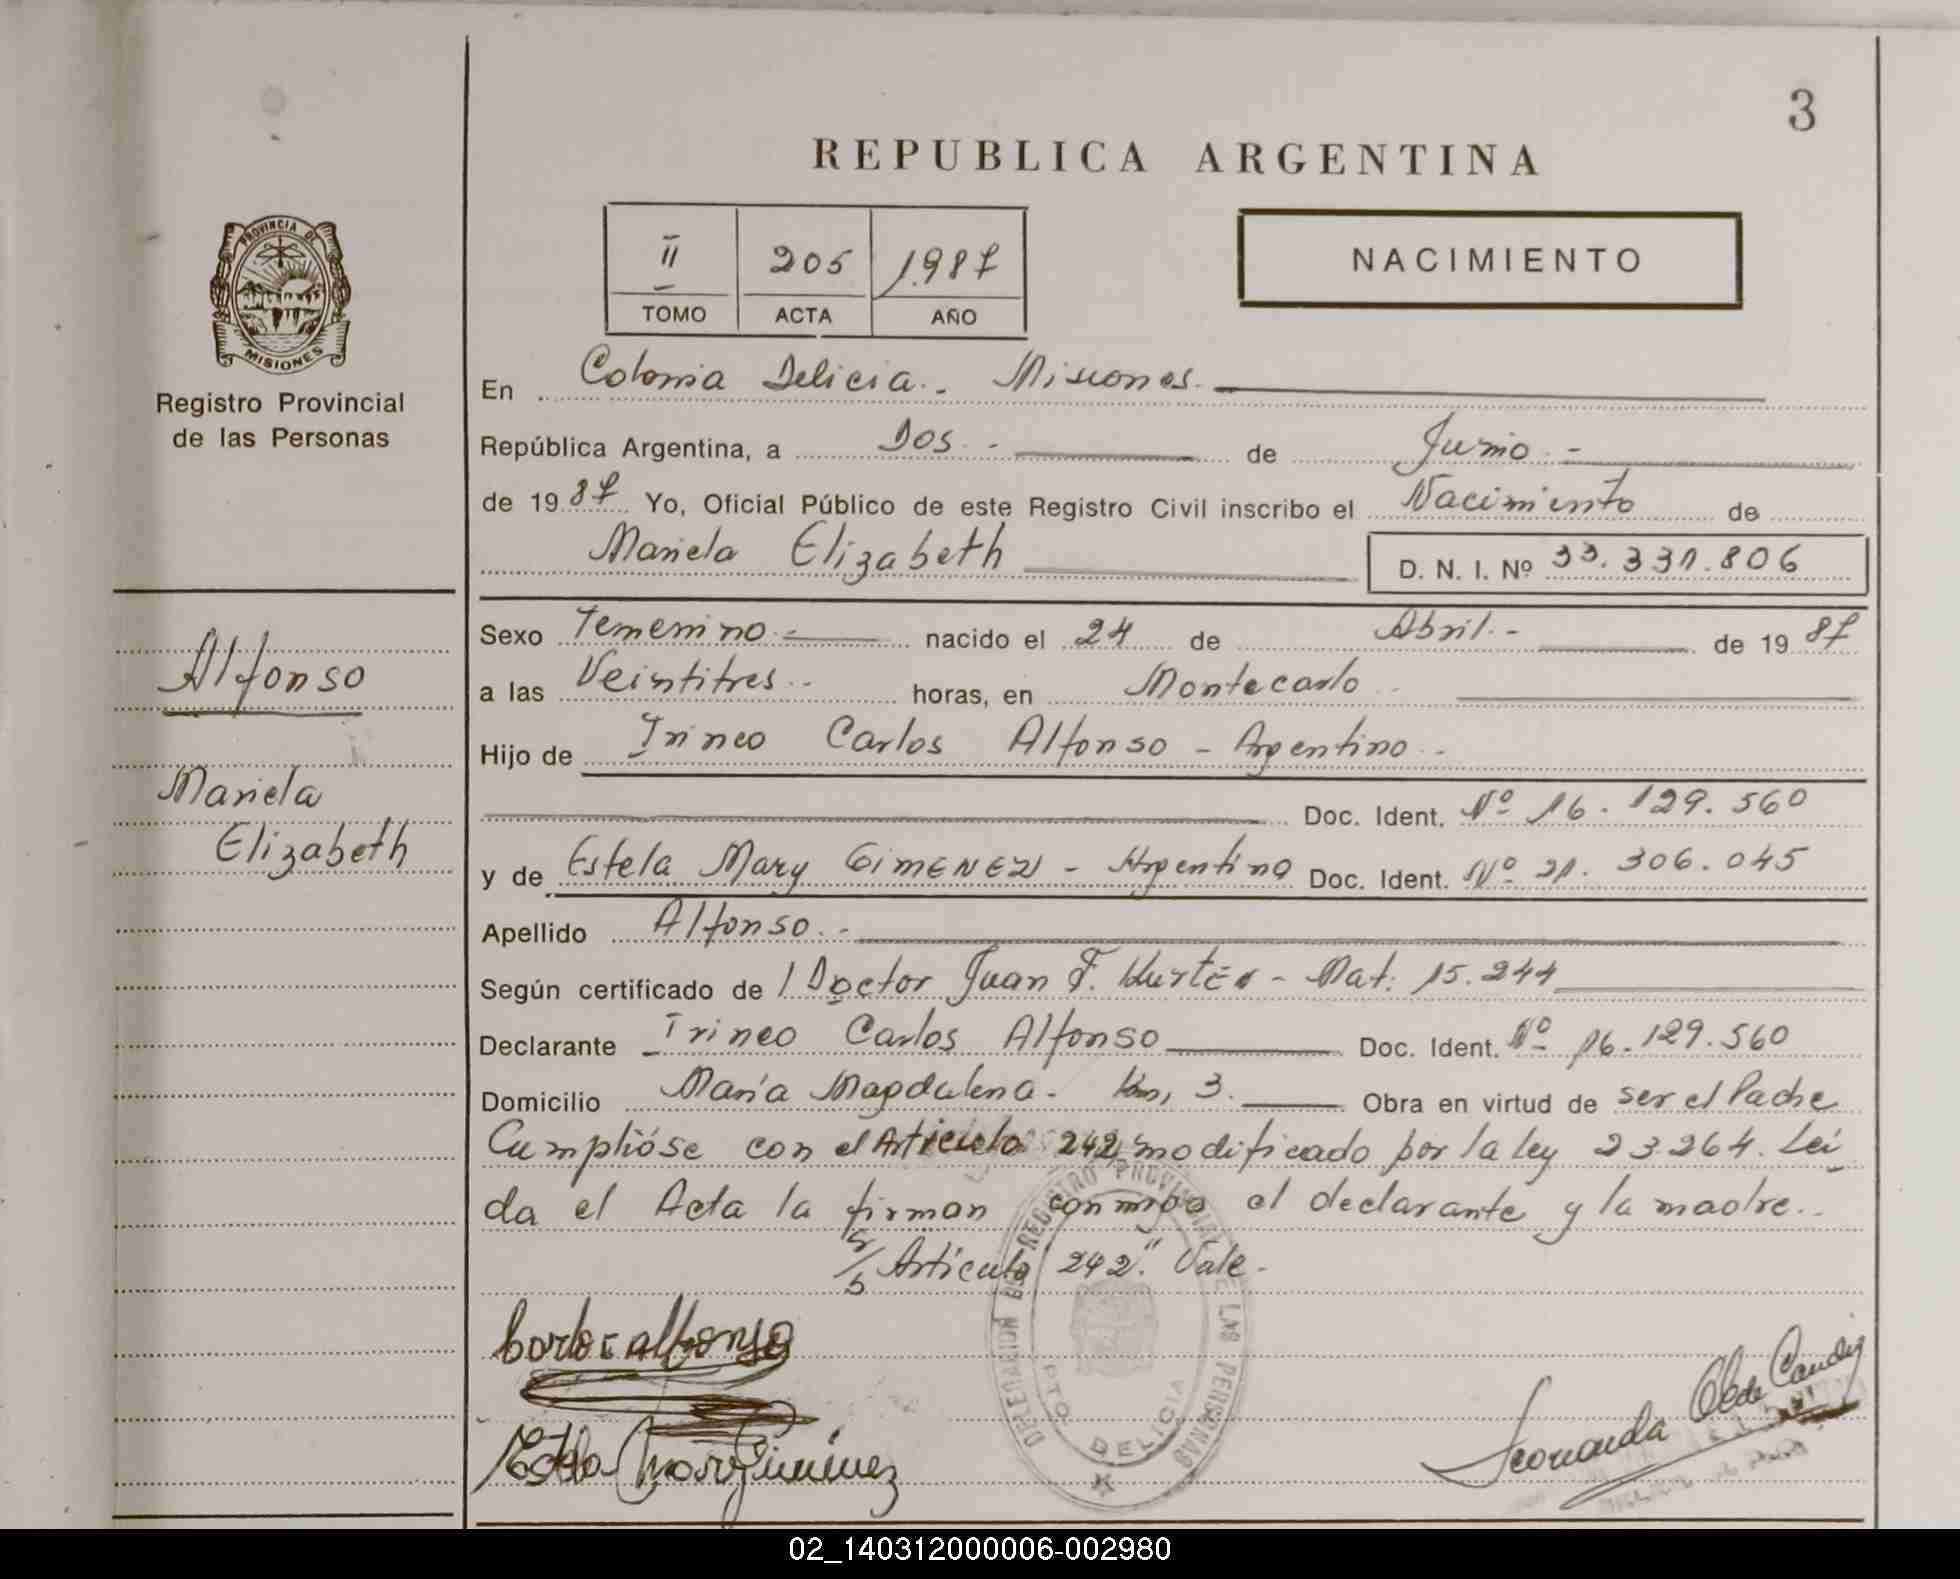 3
REPUBLICA ARGENTINA
II 205 1.987
TOMO ACTA AÑO
NACIMIENTO
PROVINCIA DE
MISIONES
Registro Provincial
de las Personas
En Colonia Delicia.- Misiones.
República Argentina, a Dos.- de Junio.-
de 1987 Yo, Oficial Público de este Registro Civil inscribo el Nacimiento de
Mariela Elizabeth D. N. I. Nº 33.331.806
Sexo Femenino.- nacido el 24 de Abril.- de 1987
a las Veintitres.- horas, en Montecarlo
Hijo de Irineo Carlos Alfonso - Argentino.-
Doc. Ident. Nº 16.129.560
y de Estela Mary GIMENEZ - Argentina Doc. Ident. Nº 21.306.045
Apellido Alfonso.-
Según certificado de l Doctor Juan F. - Mat: 15.244
Declarante Irineo Carlos Alfonso Doc. Ident. Nº 16.129.560
Domicilio María Magdalena- Km, 3. Obra en virtud de ser el Padre
Cumplióse con el Articulo 242, modificado por la ley 23264. Leí
da el Acta la firman conmigo el declarante y la madre..
s/b Artículo 242." Vale.-
Alfonso
Mariela
Elizabeth
Carlos Alfonso
Estela Mary Giménez
Leonarda
DELEGACION DEL REGISTRO PROVINCIAL DE LAS PERSONAS
PTO. DELICIA
02_140312000006-002980